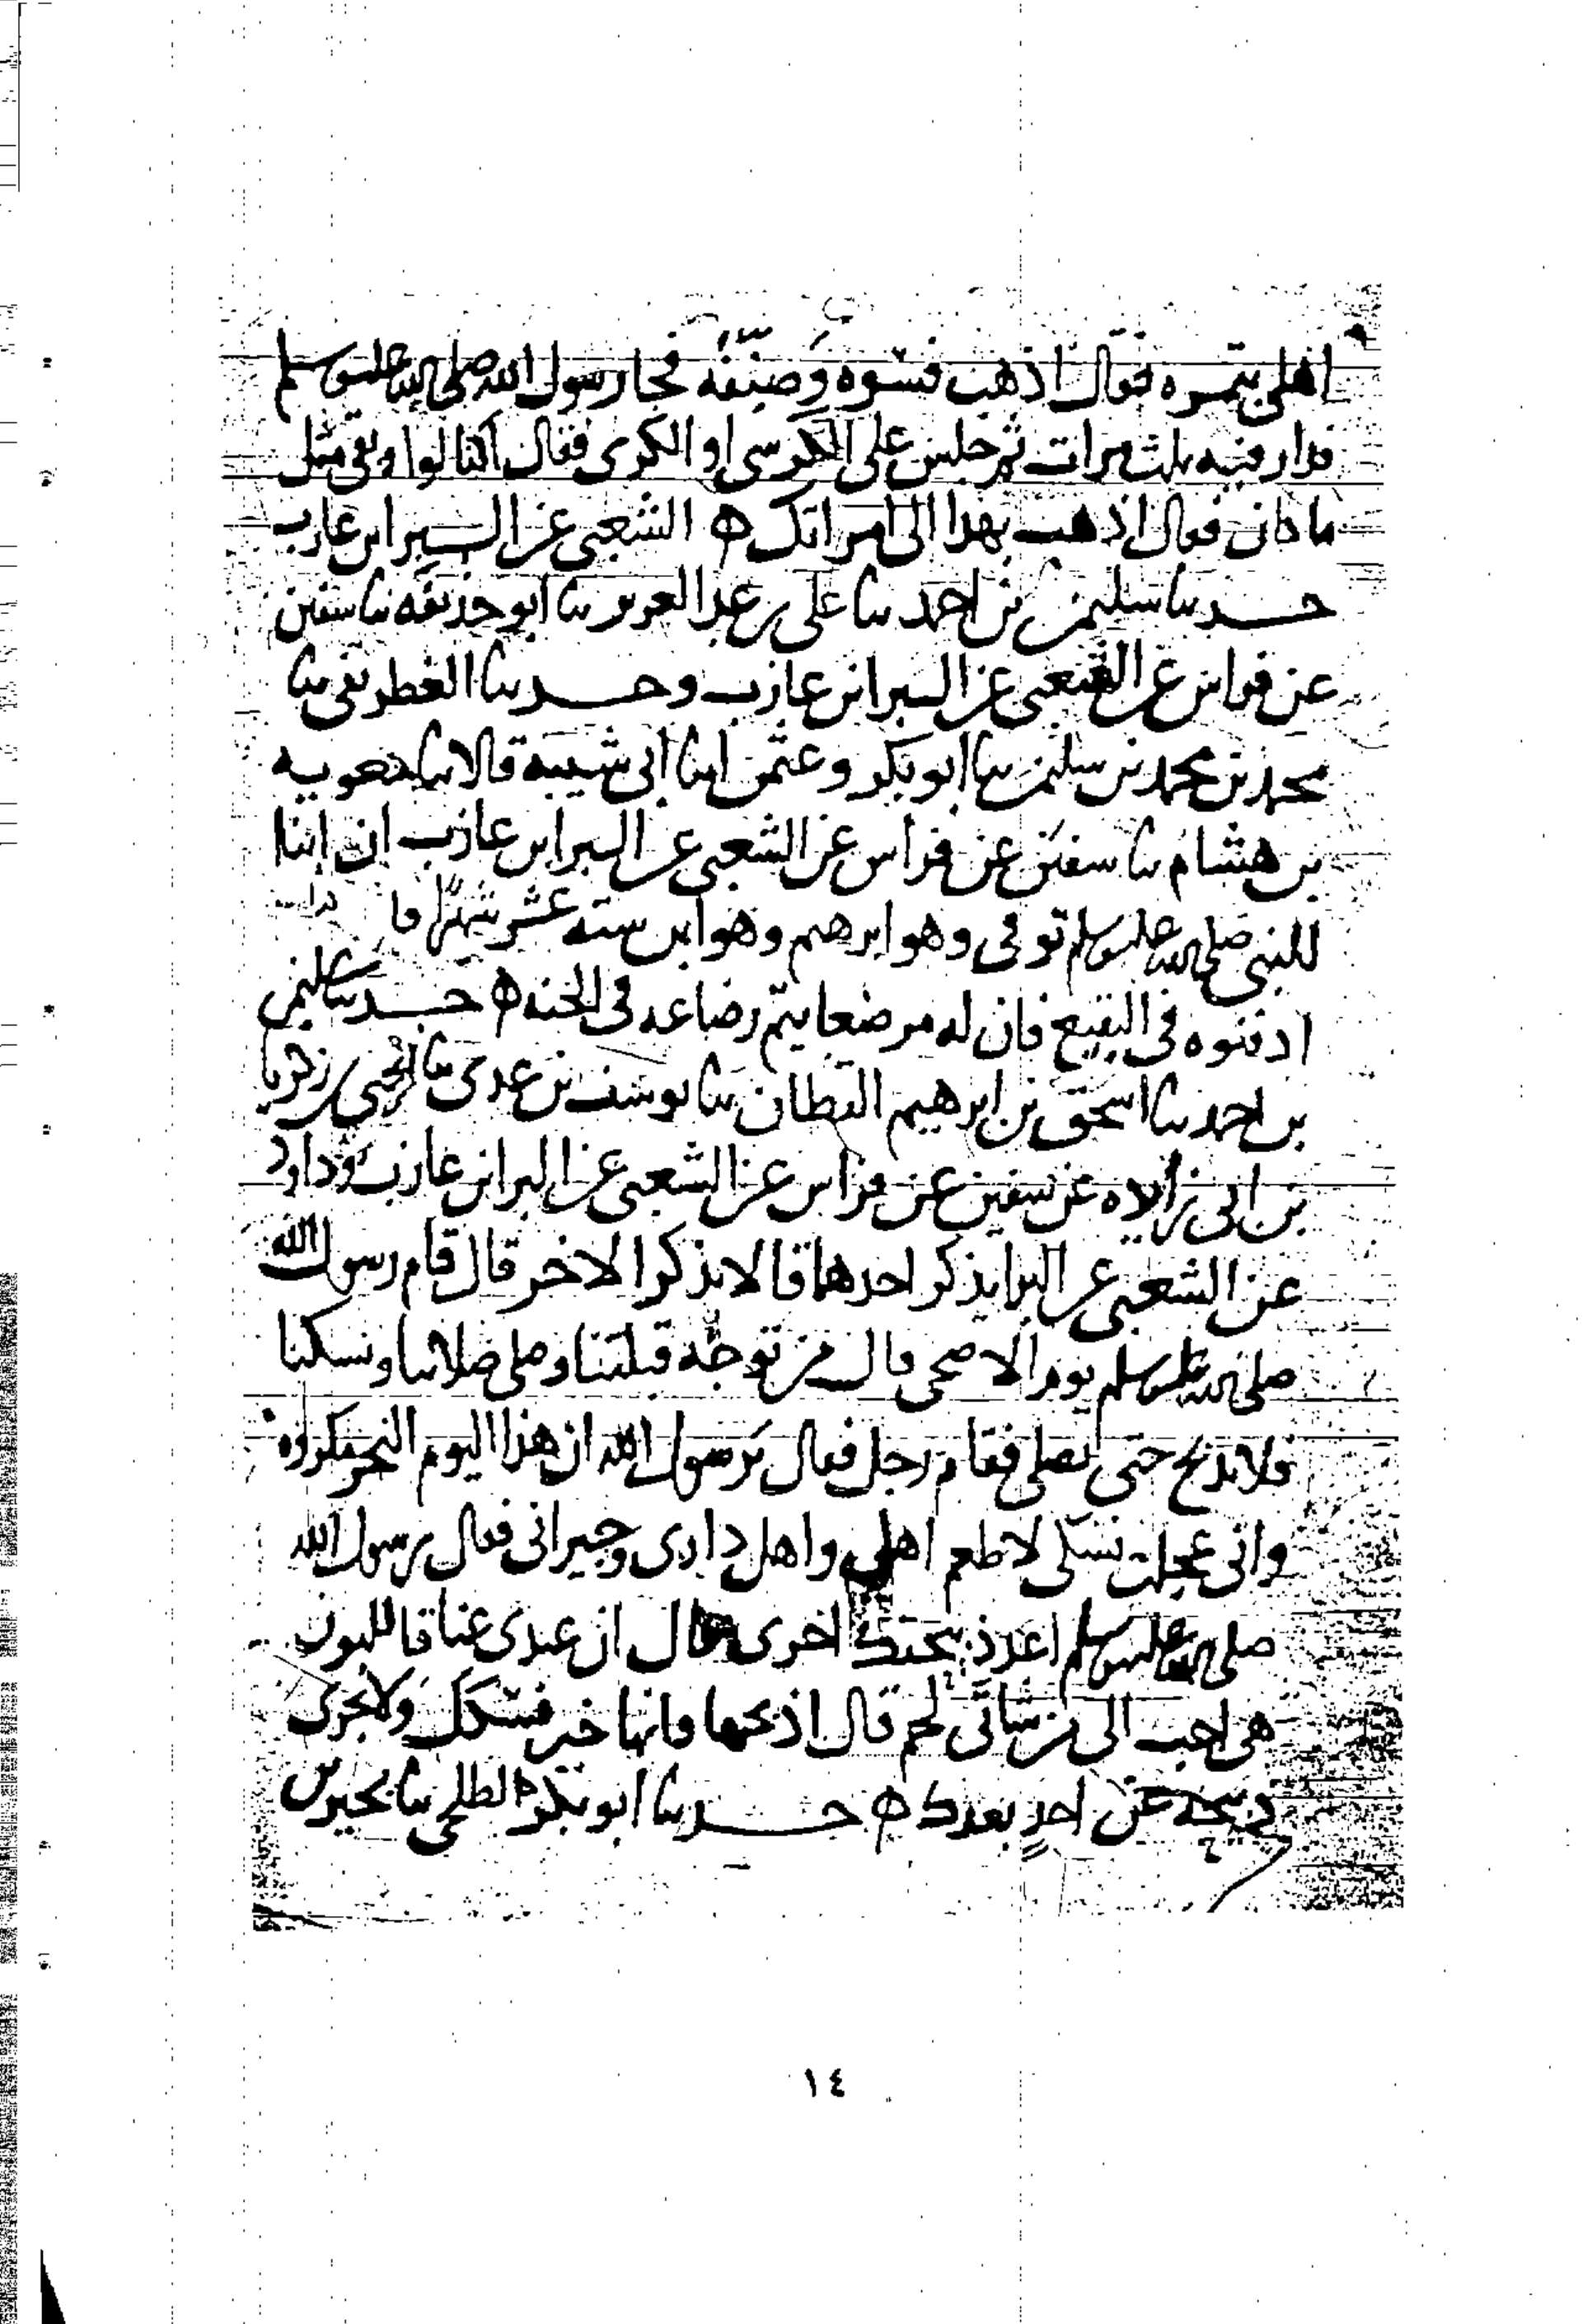 اهلي بتمره فقال اذهب فسوه وصنفه فجا رسول الله صلى الله عليه وسلم
فدار فيه ثلث مرات ثم جلس على الكرسي او الكرى فقال اكتالوا وبقي مثل
ما كان فقال اذهب بهذا الى امراتك ه الشعبي عن البرا بن عازب
حدثنا سليمن بن احمد ثنا علي بن عبد العزيز ثنا ابو حذيفه ثنا سفين
عن فراس عن الشعبي عن البرا بن عازب وحدثنا الغطريفي ثنا
محمد بن محمد بن سليمن ثنا ابو بكر وعثمن ابنا ابي شيبه قالا ثنا معويه
بن هشام ثنا سفين عن فراس عن الشعبي عن البرا بن عازب ان ابنا
للنبي صلى الله عليه وسلم توفي وهو ابرهيم وهو ابن سته عشر شهرا
ادفنوه في البقيع فان له مرضعا يتم رضاعه في الجنه ه حدثنا سليمن
بن احمد ثنا اسحق بن ابرهيم القطان ثنا يوسف بن عدي ثنا يحيى بن زكريا
بن ابي زايده عن سفين عن فراس عن الشعبي عن البرا بن عازب وداود
عن الشعبي عن البرا يذكر احدهما ما لا يذكر الاخر قال قام رسول الله
صلى الله عليه وسلم يوم الاضحى قال من توجه قبلتنا وصلى صلاتنا ونسكنا
فلا يذبح حتى يصلي فقام رجل فقال يرسول الله ان هذا اليوم اللحم مكروه
واني عجلت نسكي لاطعم اهلي واهل داري وجيراني فقال رسول الله
صلى الله عليه وسلم اعد ذبحتك اخرى فقال ان عندي عناقا للبون
هي احب الي من شاتي لحم قال اذبحها فانها خير نسكك ولا تجزي
ذبيحه عن احد بعدك ه حدثنا ابو بكر الطلحي ثنا
١٤